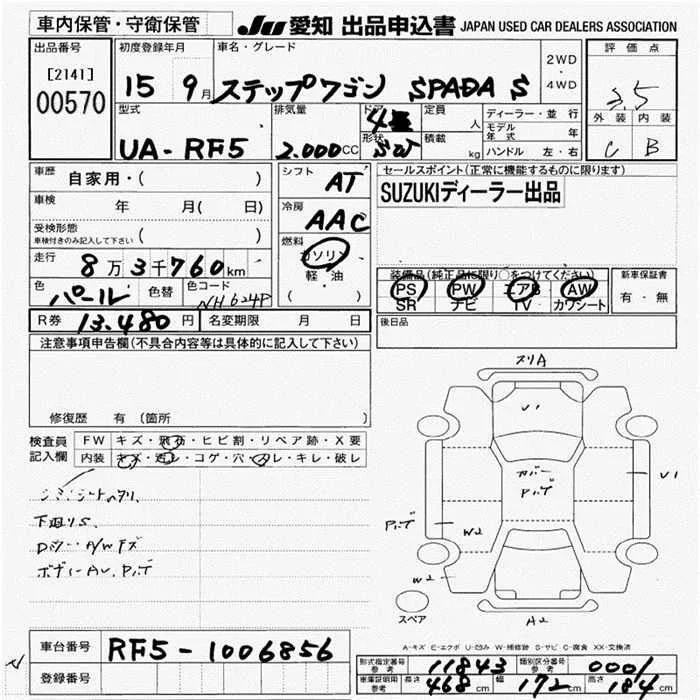 車内保管・守衛保管
JU 愛知 出品申込書 JAPAN USED CAR DEALERS ASSOCIATION
出品番号
[2141]
00570
初度登録年月
15 9月
車名・グレード
ステップワゴン SPADA S
2WD
・
4WD
評価点
3.5
外装 内装
C B
型式
UA-RF5
排気量
2.000CC
ドア
形状
定員
人
積載
kg
ディーラー・並行
モデル年式 年
ハンドル 左・右
車歴
自家用・( )
車検 年 月( 日)
受検形態
車検付きのみ記入して下さい ( )
走行
8万3千760km
色
パール
色替
色コード
NH624P
R券 13.480円
名変期限 月 日
シフト
AT
冷房
AAC
燃料
ガソリン
軽・油
( ・ )
セールスポイント(正常に機能するものに限ります)
SUZUKIディーラー出品
装備品(純正品に限り○をつけてください)
PS PW エアB AW
SR ナビ TV カワシート
新車保証書
有・無
後日品
注意事項申告欄(不具合内容等は具体的に記入して下さい)
修復歴 有 (箇所
検査員
記入欄
FW キズ・飛石・ヒビ割・リペア跡・X要
内装 キズ・汚レ・コゲ・穴・スレ・キレ・破レ
下回りS.
スリA
U1
カバー
U1
W2
W2
A2
スペア
A-キズ E-エクボ U-凹み W-補修跡 S-サビ C-腐食 XX-交換済
車台番号 RF5-1006856
登録番号
型式指定番号
参考
11843
類別区分番号
参考
0001
車庫証明用
参考
長さ 468cm 幅 172cm 高さ 184cm